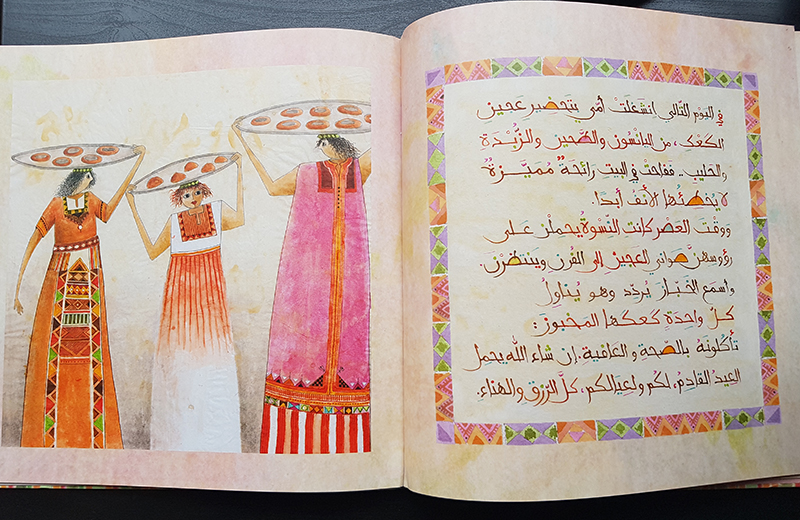 في اليَومِ التّالي انشَغَلَتْ أمّي بِتَحضيرِ عَجينِ
الكَعْكِ، مِنَ اليانْسُونِ والطَّحينِ والزُّبدَةِ
والحَليبِ.. ففاحَتْ في البيتِ رائحَةٌ مُمَيَّزةٌ
لا يُخْطِئُها الأنْفُ أبَدًا.
وَوَقتَ العَصرِ كانَت النِّسْوةُ يحمِلْنَ عَلى
رؤوسِهنَّ صَواني العَجينِ إلى الفُرنِ وَينتظِرْنَ.
وأسمَع الخَبّازَ يُردّد وهو يُناوِلُ
كلَّ واحدَةٍ كَعكَها المَخبوزَ:
تأكُلونَهُ بالصّحةِ والعَافيةِ. إن شاءَ الله يَحمِل
العِيدُ القادِمُ، لكُم ولِعيَالِكم، كلَّ الرّزقِ والهَناءِ.